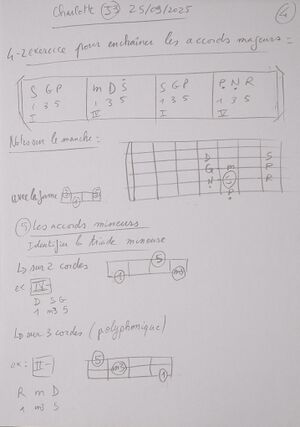 Charlotte 33 25/09/2025
4
4-2 exercice pour enchaîner les accords majeurs =
S G P m D S S G P P N R
1 3 5 1 3 5 1 3 5 1 3 5
I IV I V
Notes sur le manche :
D S
G m P
N G R
P
avec la forme
5 Les accords mineurs
Identifier la triade mineure
↳ sur 2 cordes
5
1 m3
ex IV-
D S G
1 m3 5
↳ sur 3 cordes (polyphonique)
5
ex : II- m3
1
R m D
1 m3 5